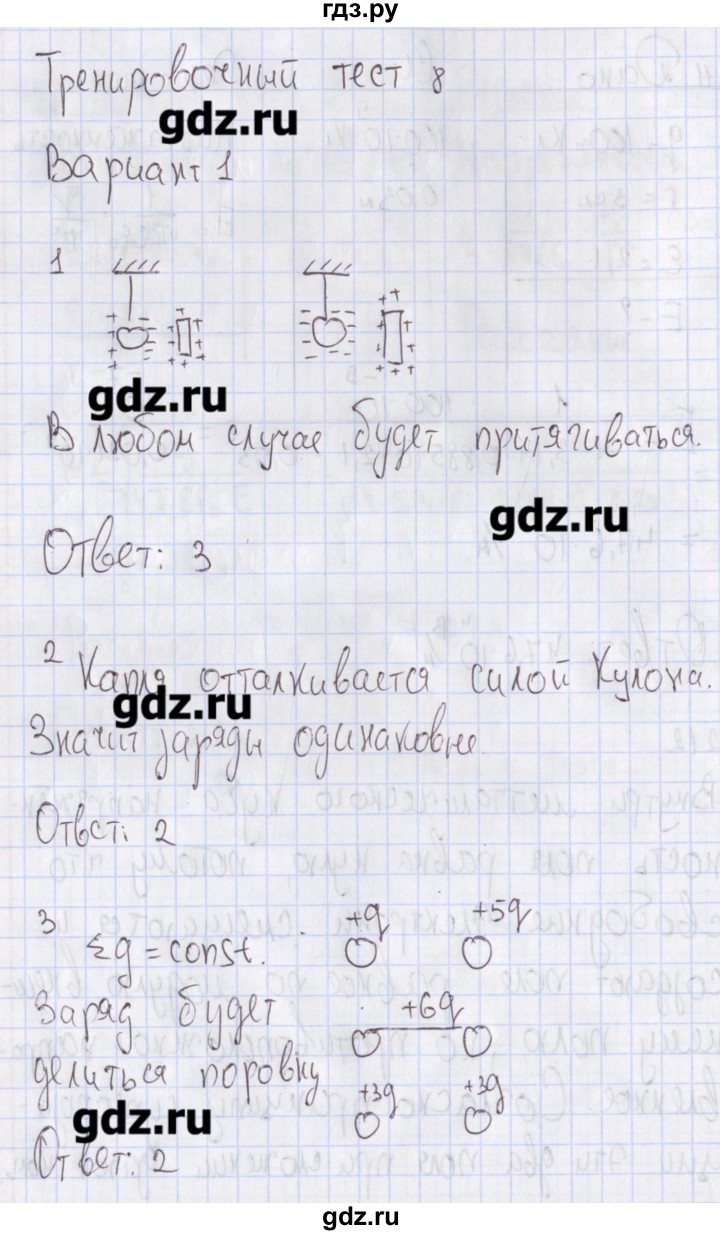 гдз.ру
Тренировочный тест 8
gdz.ru
Вариант 1
1
gdz.ru
В любом случае будет притягиваться.
gdz.ru
Ответ: 3
2 Капля отталкивается силой Кулона.
gdz.ru
Значит заряды одинаковые.
Ответ: 2
3
+q +5q
Σq = const.
Заряд будет
+6q
делиться поровну
+3q +3q
gdz.ru
Ответ: 2
gdz.ru